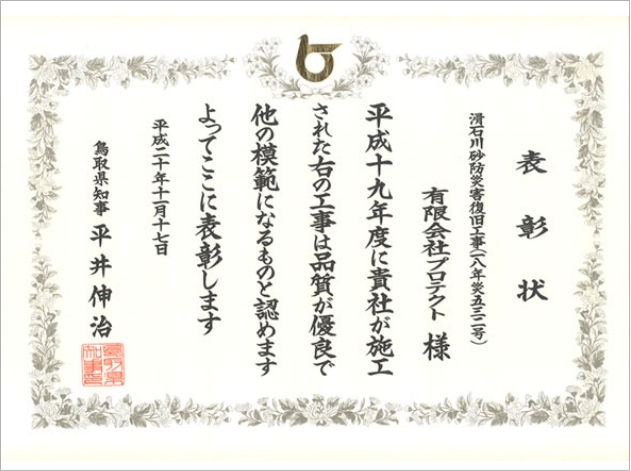 表彰状
滑石川砂防災害復旧工事(一八年災五三二号)
有限会社プロテクト 様
平成十九年度に貴社が施工
された右の工事は品質が優良で
他の模範になるものと認めます
よってここに表彰します
平成二十年十一月十七日
鳥取県知事 平井伸治